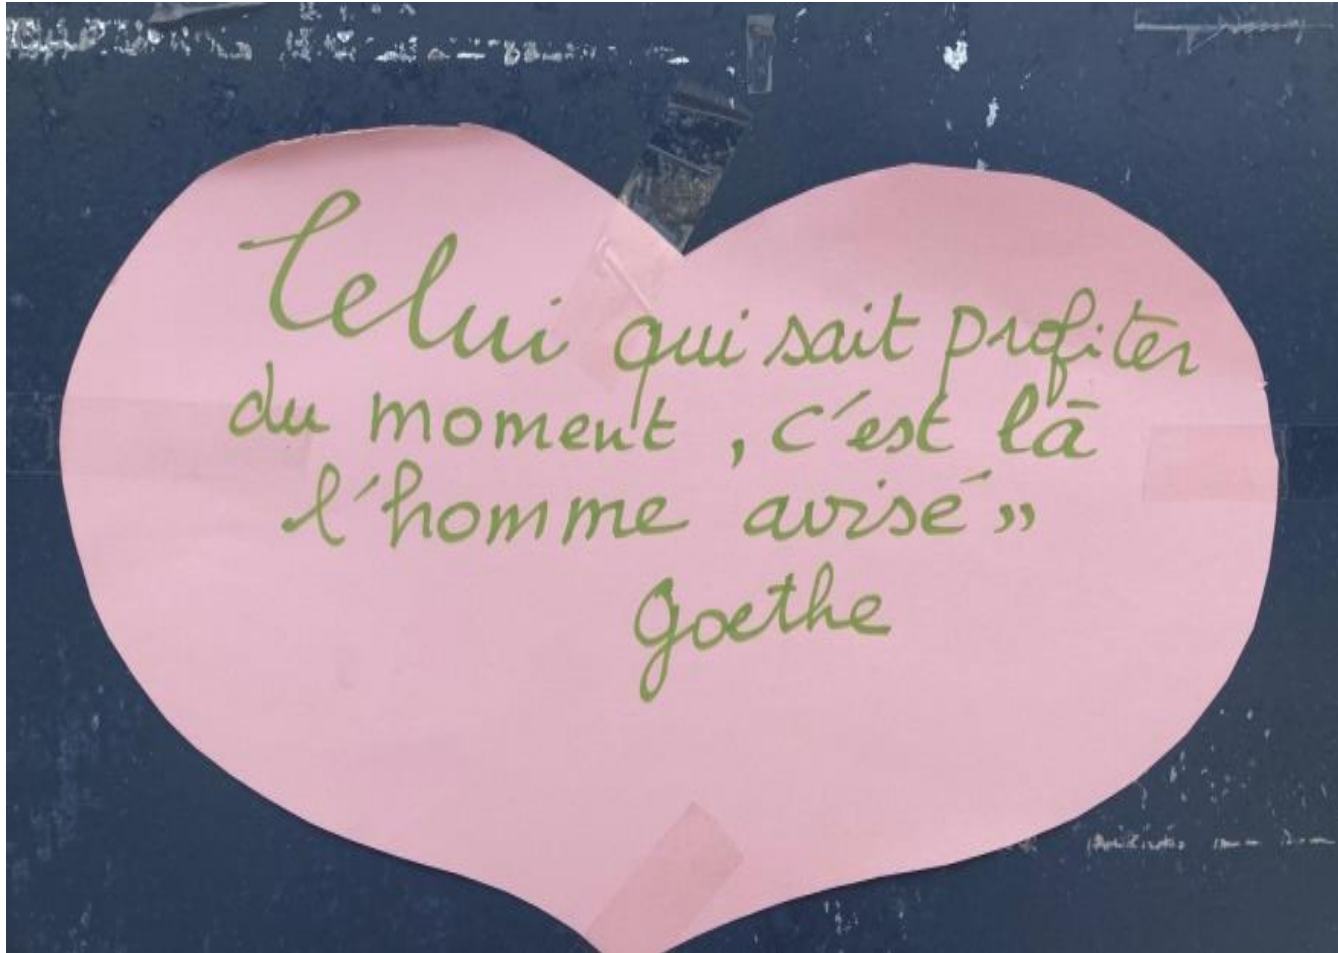 Celui qui sait profiter
du moment, c'est là
l'homme avisé"
Goethe